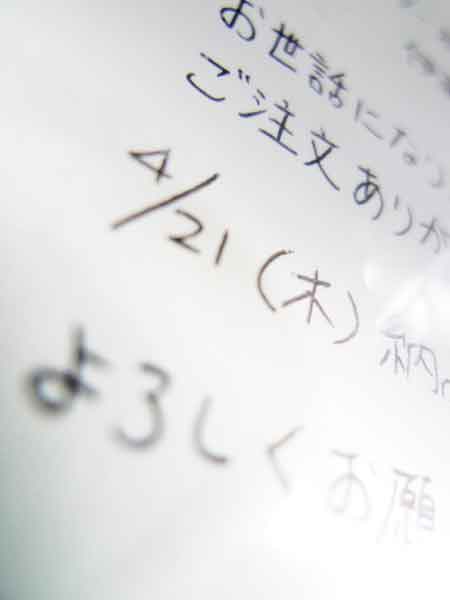 お世話になり
ご注文ありが
4/21(木) 納
よろしくお願